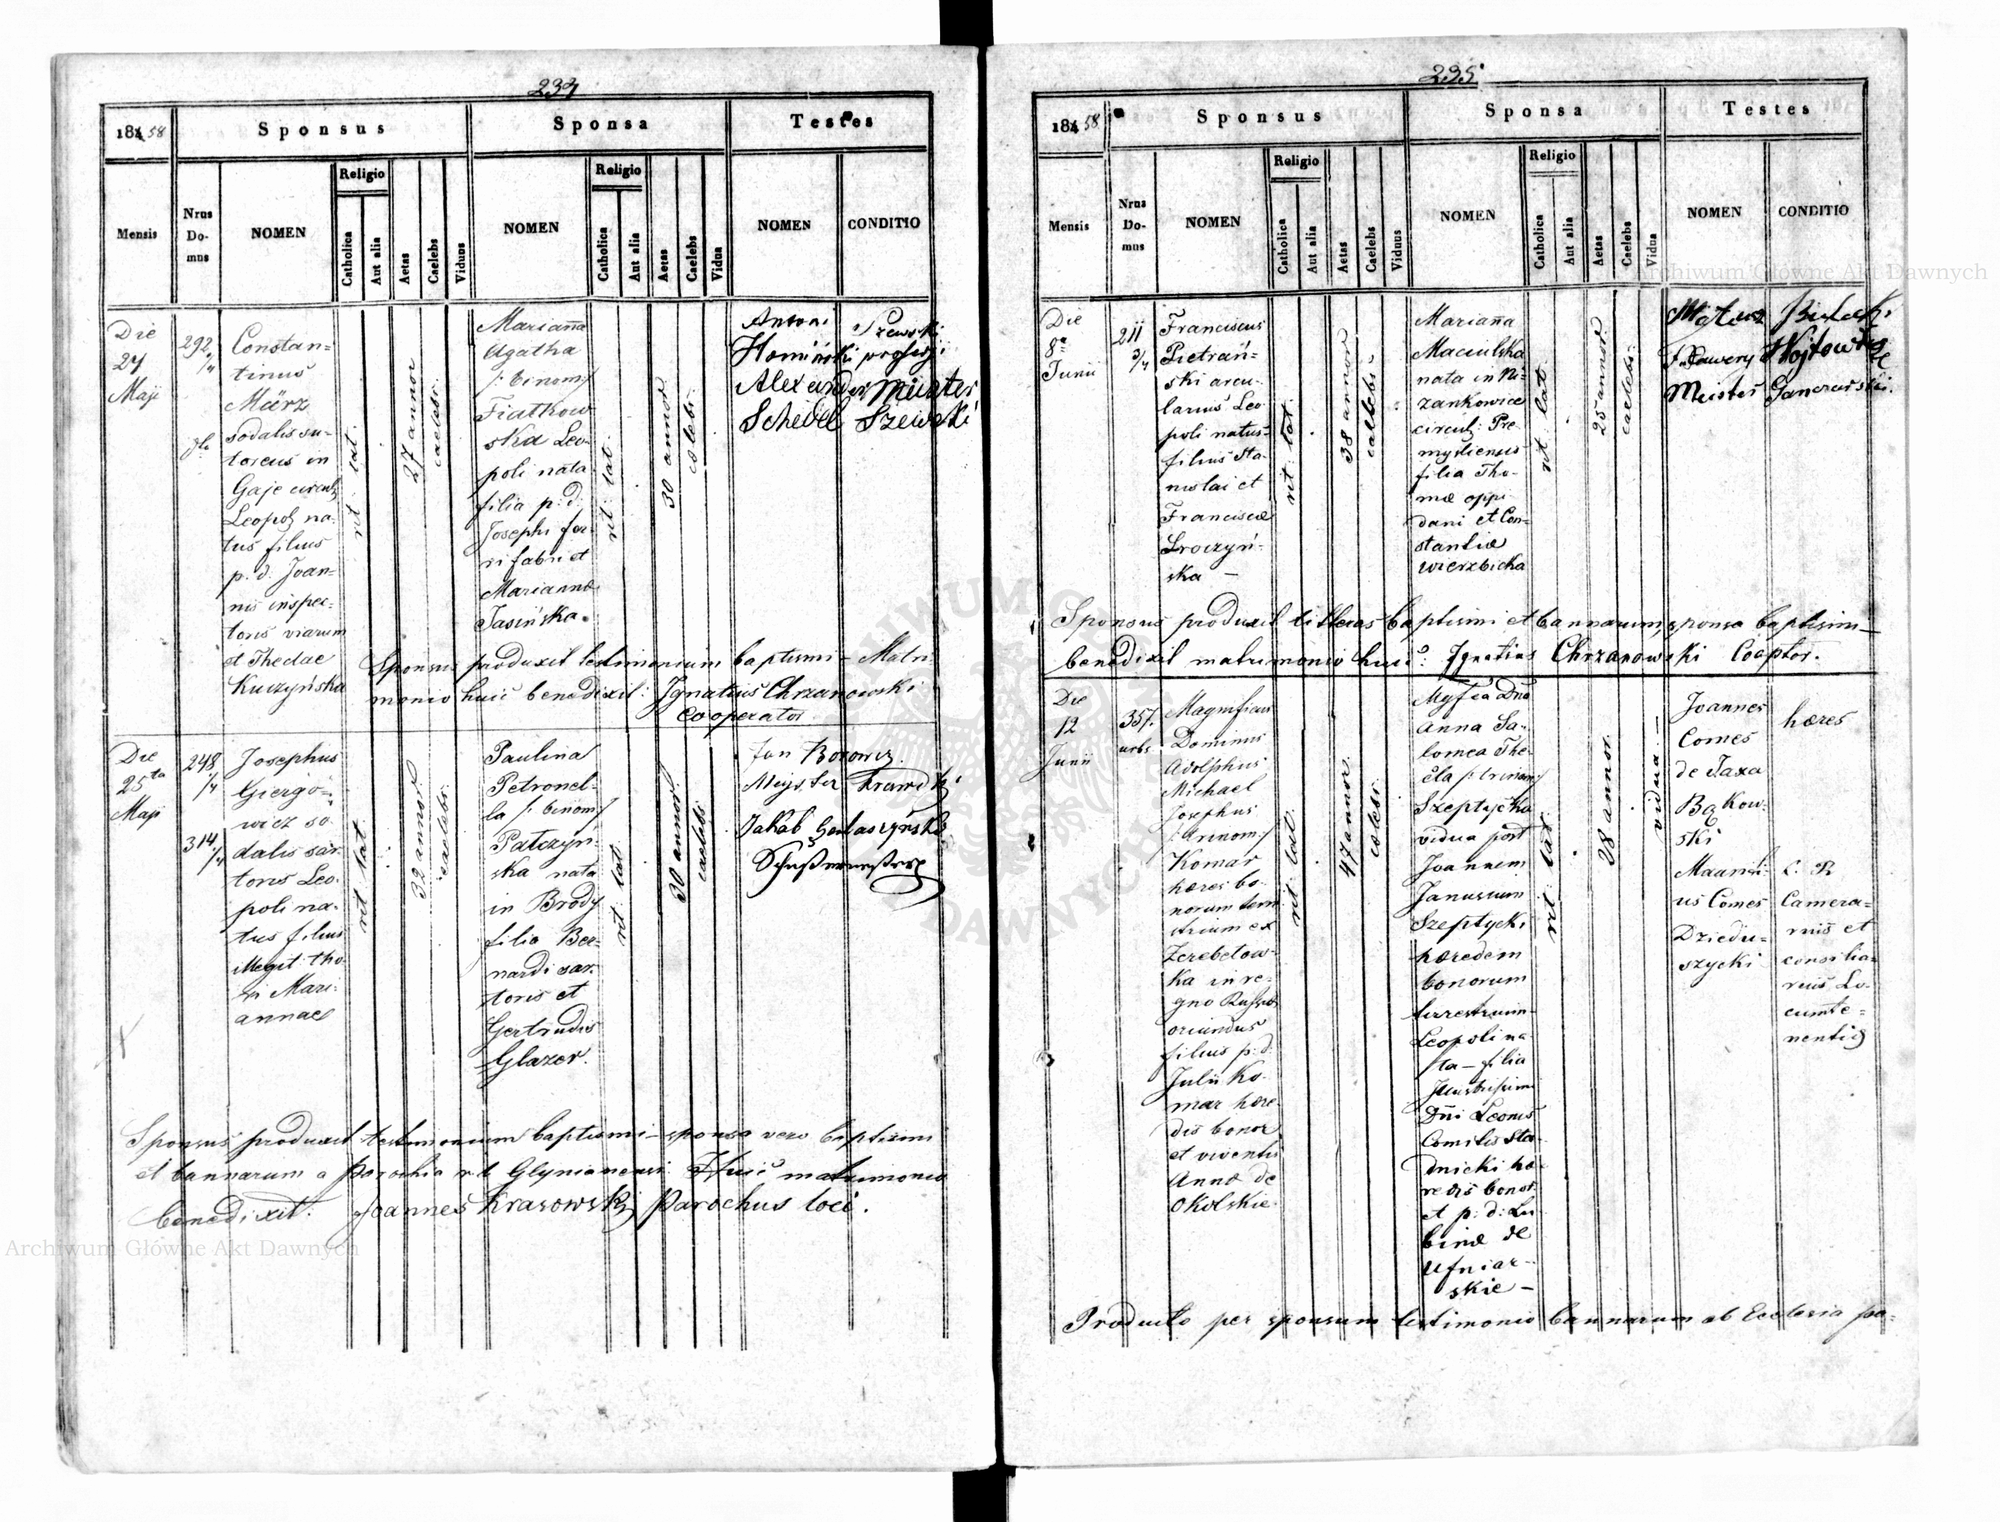 234
1858
Sponsus
Sponsa
Testes
Mensis
Nrus
Do-
mus
NOMEN
Religio
Catholica
Aut alia
Aetas
Caelebs
Viduus
NOMEN
Religio
Catholica
Aut alia
Aetas
Caelebs
Vidua
NOMEN
CONDITIO
Die
27
Maji
292
/4
Constan=
tinus
März
sodalis su-
torius in
Gaje circul:
Leopol: na-
tus filius
p: d: Joan-
nis inspec-
toris viarum
et Theclae
Kuczyńska
rit: lat:
27 annor
caelebs:
Marianna
Agatha
/: binom:/
Fiatkow
ska Leo-
poli nata
filia p: d:
Josephi fer-
ri fabri et
Marianna
Jasińska.
rit: lat:
30 annor
caelebs
Antoni
Homiński profesyi
Alexander Meister
Schedel Szewcki
Sponsus produxit testimonium baptismi – Matri
monio huic benedixit: Ignatius Chrzanowski
Cooperator
Die
25ta
Maji
248
/4
314
/4
Josephus
Giergo-
wicz so-
dalis sar-
toris Leo-
poli na-
tus filius
annae
rit: lat:
32 annor
caelebs:
Paulina
Petronel-
la /: binom:/
Patczyń
ska nata
in Brody
filia Ber-
nardi sar-
toris et
Gertrudis
Glazer.
rit: lat:
30 annor:
caelebs
Jan Borowicz
Majster Krawiecki
Jakób
Schuhmachermeister
Sponsus produxit testimonium baptismi – sponsa vero baptismi
et bannarum a Parochia r. l. Glynianensi. Huic matrimonio
benedixit: Joannes Krasowski Parochus loci.
235
1858
Sponsus
Sponsa
Testes
Mensis
Nrus
Do-
mus
NOMEN
Religio
Catholica
Aut alia
Aetas
Caelebs
Viduus
NOMEN
Religio
Catholica
Aut alia
Aetas
Caelebs
Vidua
NOMEN
CONDITIO
Die
8a
Junii
211
3/4
Franciscus
Pietrań-
ski arcu-
larius Leo-
poli natus
filius Sta-
nislai et
Franciscae
Sroczyń-
ska –
rit: lat:
38 annor
caelebs
Marianna
Maciulska
nata in Ni-
zankowice
circul: Pre-
mysliensis
filia Tho-
mae oppi-
dani et Con-
stantiae
Wierzbicka
rit: lat:
25 annor
caelebs:
Mateusz Bielecki
F. Xawery Wojtowicz
Meister Garncarski.
Sponsus produxit litteras baptismi et bannarum, sponsa baptismi –
benedixit matrimonio huic: Ignatius Chrzanowski Cooptor.
Die
12
Junii
357.
urbs
Magnificus
Dominus
Adolphus
Michael
Josephus
/: trinom:/
Komar
haeres bo-
norum terre
strium ex
Zerebelow-
ka in re-
gno Russo
oriundus
filius p: d:
Julii Ko-
mar haere-
dis bonor
et viventis
Anna de
Okolskie.
rit: lat:
47 annor.
caelebs:
Mgfca Dna
Anna Sa-
lomea The-
cla /: trinom:/
Szeptycka
vidua post
Joannem
Januarium
Szeptycki
haeredem
bonorum
terrestrium
Leopoli na-
ta – filia
Illustrissimi
Dni Leonis
Comitis Sta-
dnicki hae-
redis bonor:
et p: d: Lu-
binae de
Ufniar-
skie –
rit: lat:
28 annor.
vidua –
Joannes
Comes
de Taxa
Bąkow-
ski
haeres
Mauriti-
us Comes
Dziedu-
szycki
C. R.
Camera-
rius et
consilia-
rius Lo-
cumte-
nentia
Producto per sponsum testimonio bannarum ab Ecclesia pa-
Archiwum Główne Akt Dawnych
Archiwum Główne Akt Dawnych